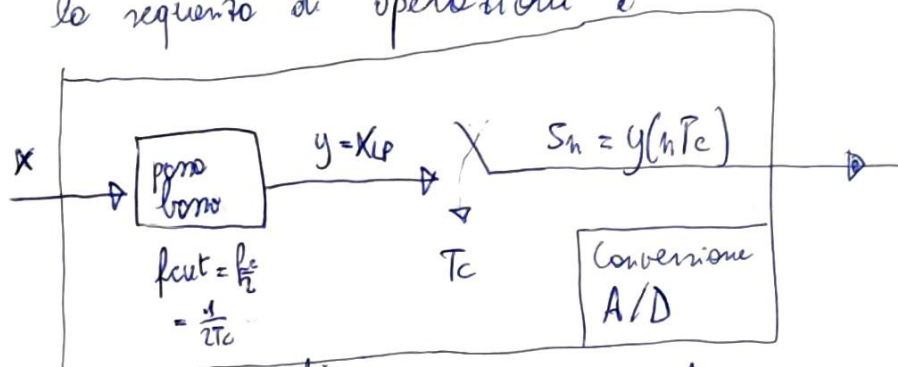 la sequenza di operazioni è
x
passa
basso
y = x_LP
S_n = y(nT_c)
f_cut = f_c/2
= 1/2T_c
T_c
Conversione
A/D